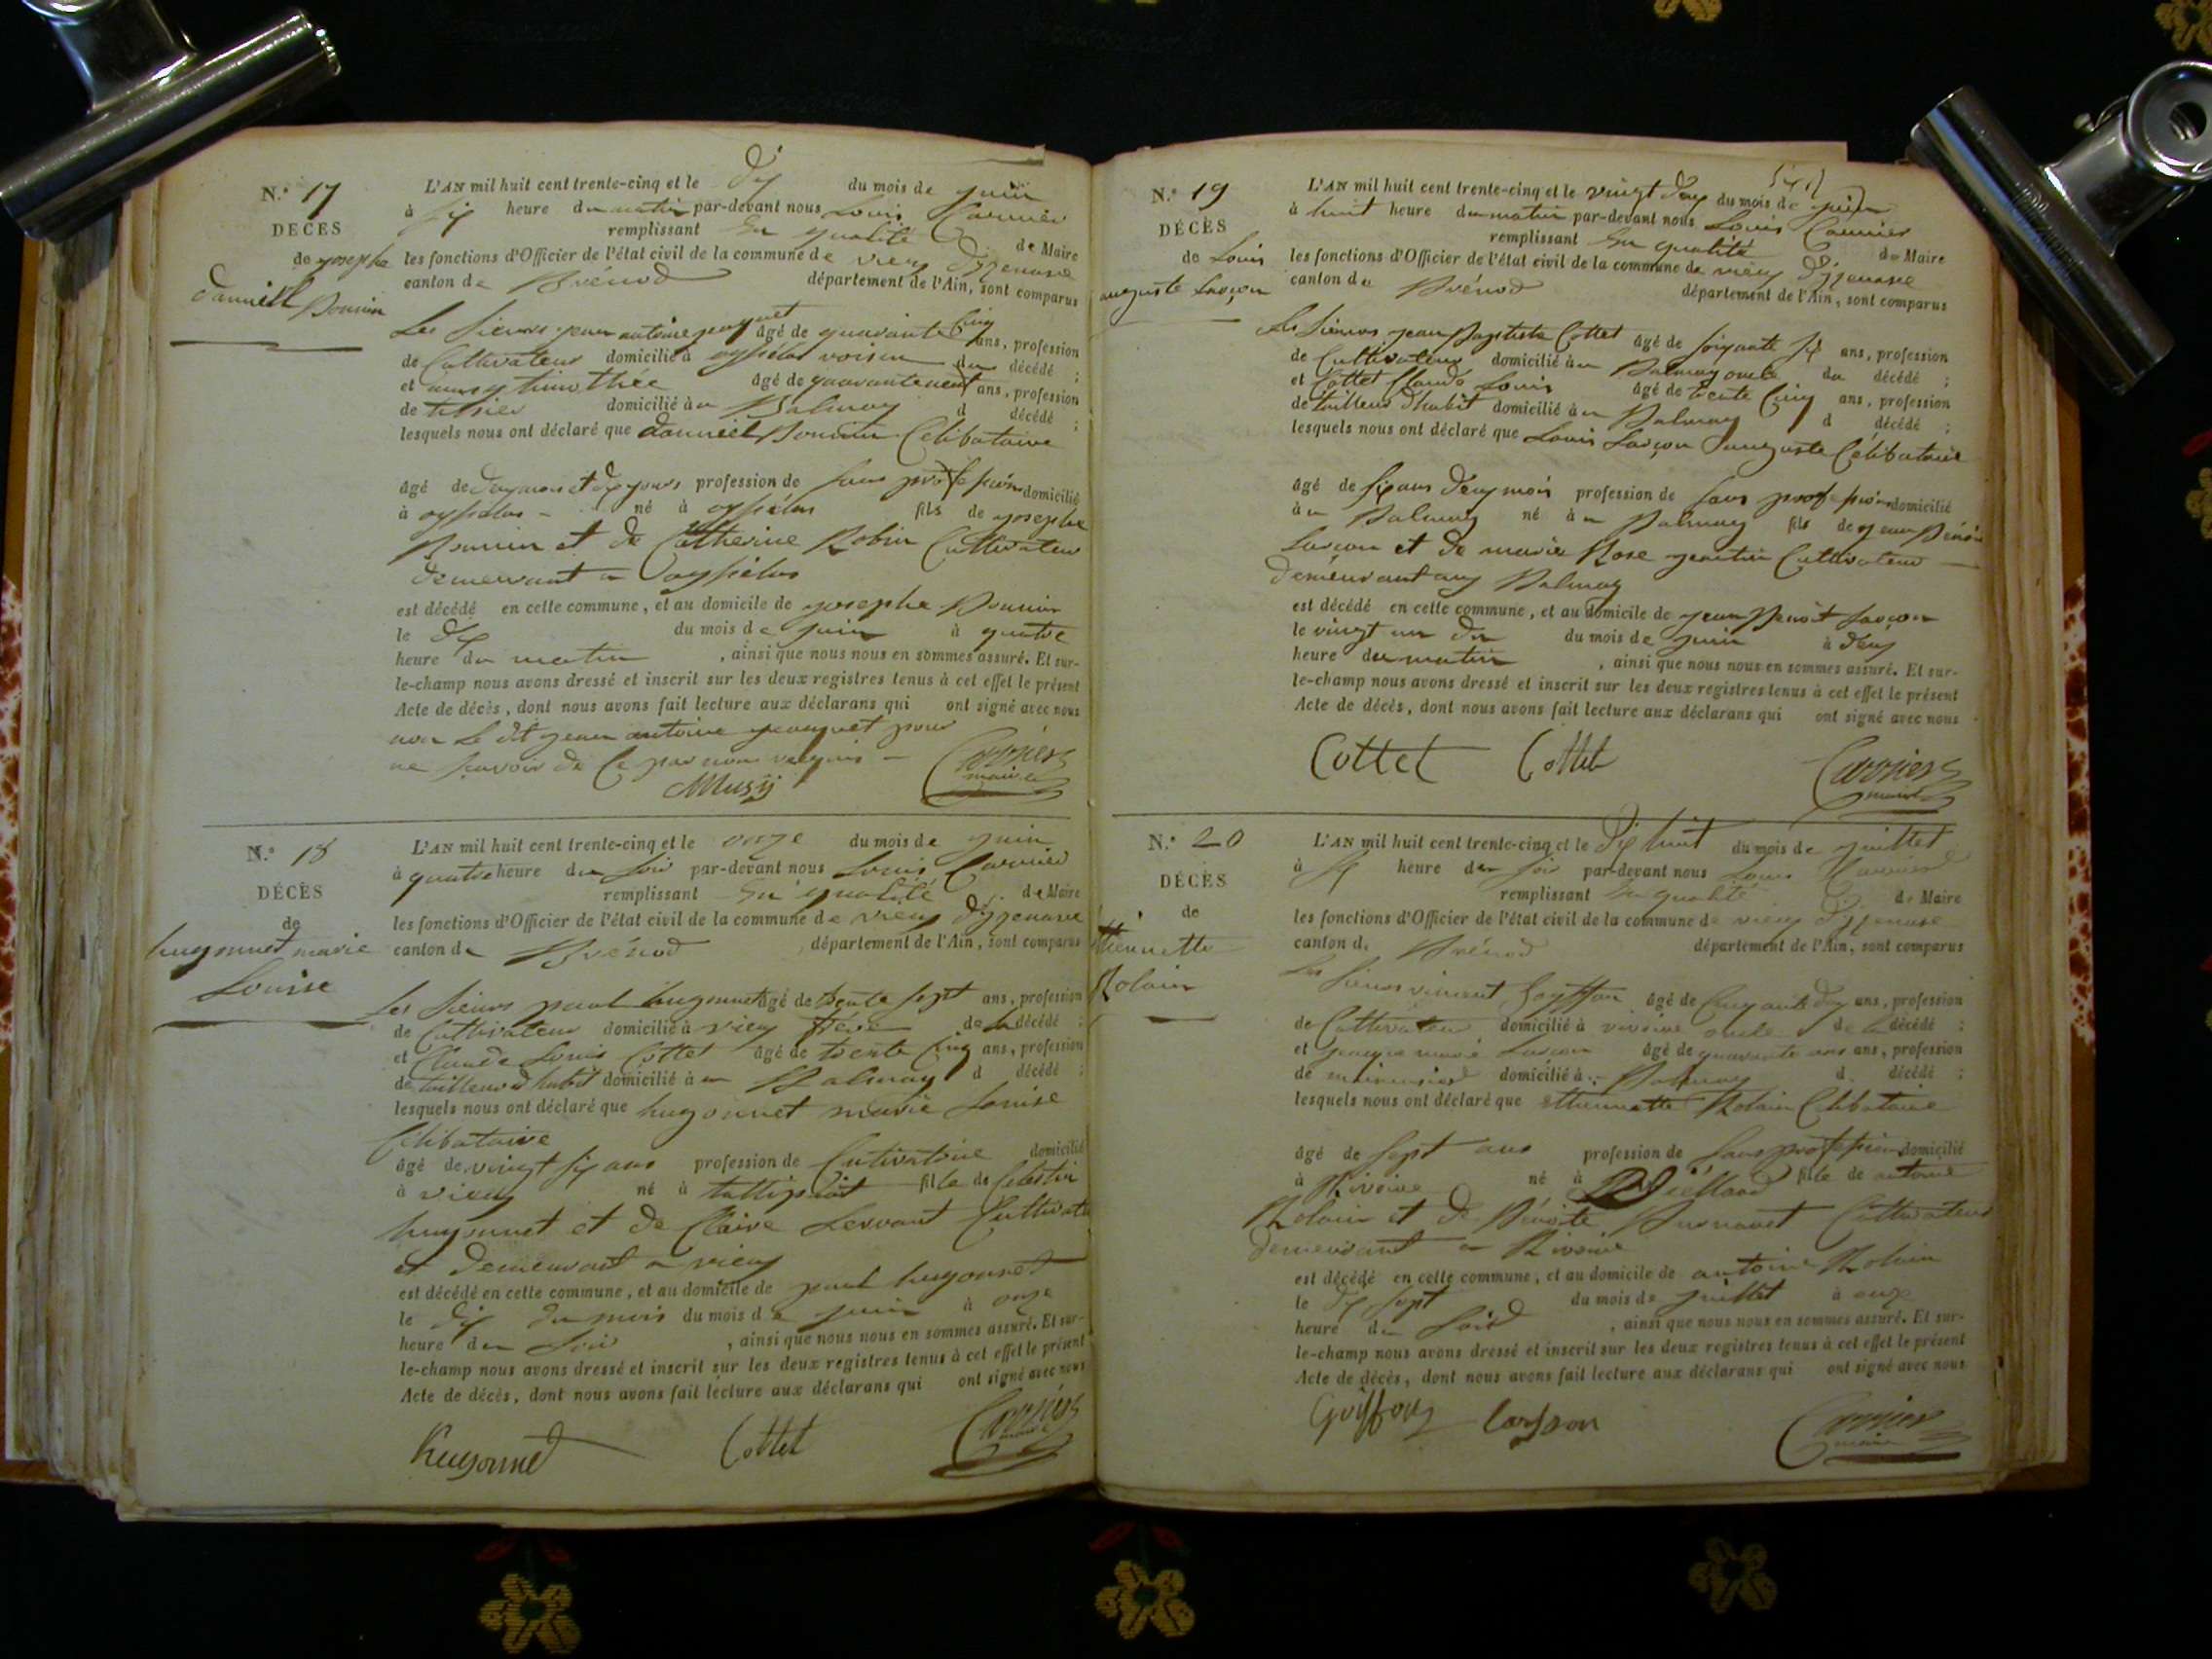 N.° 17
DÉCÈS
de josephe
danniell Bonnin
L'AN mil huit cent trente-cinq et le dix du mois de juin
à six heure du matin par-devant nous Louis Carrier
remplissant en qualité de Maire
les fonctions d'Officier de l'état civil de la commune de vieu d'izenave
canton de Brénod département de l'Ain, sont comparus
Les sieurs jean antoine âgé de quarante cinq ans, profession
de Cultivateur domicilié à voisin du décédé ;
et timothée âgé de quaranteneuf ans, profession
de tissier domicilié à Balmay d décédé ;
lesquels nous ont déclaré que danniell Bonnin Célibataire
âgé de deux mois et dix jours profession de sans profession domicilié
à né à fils de josephe
Bonnin et de Catherine Robin Cultivateur
demeurant a
est décédé en cette commune, et au domicile de josephe Bonnin
le dix du mois de juin à quatre
heure du matin , ainsi que nous nous en sommes assuré. Et sur-
le-champ nous avons dressé et inscrit sur les deux registres tenus à cet effet le présent
Acte de décès, dont nous avons fait lecture aux déclarans qui ont signé avec nous
non le dit jean antoine pour
ne savoir de ce par nous requis
Musy Carrier maire
N.° 18
DÉCÈS
de
hugonnet marie
Louise
L'AN mil huit cent trente-cinq et le onze du mois de juin
à quatre heure du soir par-devant nous Louis Carrier
remplissant en qualité de Maire
les fonctions d'Officier de l'état civil de la commune de vieu d'izenave
canton de Brénod département de l'Ain, sont comparus
Les sieurs paul hugonnet âgé de trente sept ans, profession
de Cultivateur domicilié à vieu frère de la décédé ;
et Claude Louis Cottet âgé de trente cinq ans, profession
de tailleur d'habit domicilié à Balmay d décédé ;
lesquels nous ont déclaré que hugonnet marie Louise
Célibataire
âgé de vingt six ans profession de Cultivatrice domicilié
à vieu né à fille de Célestin
hugonnet et de Claire Servant Cultivate
et demeurant a vieu
est décédé en cette commune, et au domicile de paul hugonnet
le dix du mois du mois de juin à onze
heure du soir , ainsi que nous nous en sommes assuré. Et sur-
le-champ nous avons dressé et inscrit sur les deux registres tenus à cet effet le présent
Acte de décès, dont nous avons fait lecture aux déclarans qui ont signé avec nous
hugonnet Cottet Carrier maire
N.° 19
DÉCÈS
de Louis
auguste Larçon
L'AN mil huit cent trente-cinq et le vingt deux du mois de juin
à huit heure du matin par-devant nous Louis Carrier
remplissant en qualité de Maire
les fonctions d'Officier de l'état civil de la commune de vieu d'izenave
canton de Brénod département de l'Ain, sont comparus
Les sieurs jean Baptiste Cottet âgé de soixante six ans, profession
de Cultivateur domicilié à Balmay oncle du décédé ;
et Cottet Claude Louis âgé de trente cinq ans, profession
de tailleur d'habit domicilié à Balmay d décédé ;
lesquels nous ont déclaré que Louis Larçon auguste Célibataire
âgé de six ans deux mois profession de sans profession domicilié
à Balmay né à Balmay fils de jean Bénoit
Larçon et de marie Rose Cultivateur
demeurant aux Balmay
est décédé en cette commune, et au domicile de jean Benoit Larçon
le vingt un du du mois de juin à deux
heure du matin , ainsi que nous nous en sommes assuré. Et sur-
le-champ nous avons dressé et inscrit sur les deux registres tenus à cet effet le présent
Acte de décès, dont nous avons fait lecture aux déclarans qui ont signé avec nous
Cottet Cottet Carrier maire
N.° 20
DÉCÈS
de
Etiennette
Rolain
L'AN mil huit cent trente-cinq et le dix huit du mois de juillet
à six heure du soir par-devant nous Louis Carrier
remplissant en qualité de Maire
les fonctions d'Officier de l'état civil de la commune de vieu d'izenave
canton de Brénod département de l'Ain, sont comparus
Les sieurs vincent âgé de Cinquante deux ans, profession
de Cultivateur domicilié à oncle de la décédé ;
et marie Larçon âgé de quarante ans ans, profession
de domicilié à Balmay d décédé ;
lesquels nous ont déclaré que Rolain Célibataire
âgé de sept ans profession de sans profession domicilié
à Rivoire né à fille de antoine
Rolain et de Bénoite Cultivateur
demeurant a Rivoire
est décédé en cette commune, et au domicile de antoine Rolain
le dix sept du mois de juillet à onze
heure du soir , ainsi que nous nous en sommes assuré. Et sur-
le-champ nous avons dressé et inscrit sur les deux registres tenus à cet effet le présent
Acte de décès, dont nous avons fait lecture aux déclarans qui ont signé avec nous
Carrier maire